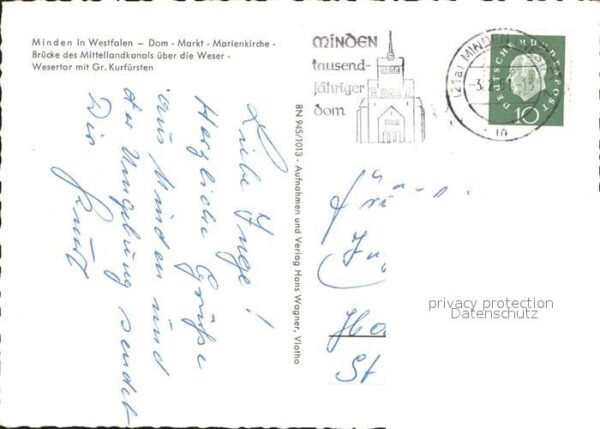 Minden in Westfalen – Dom - Markt - Marienkirche -
Brücke des Mittellandkanals über die Weser -
Wesertor mit Gr. Kurfürsten
Liebe Inge!
Herzliche Grüße
aus Minden und
der Umgebung sendet
Dir
BN 945/1013 - Aufnahmen und Verlag Hans Wagner, Vlotho
MINDEN
tausend-
jähriger
dom
(21a) MINDEN
DEUTSCHE BUNDESPOST
10
privacy protection
Datenschutz
St